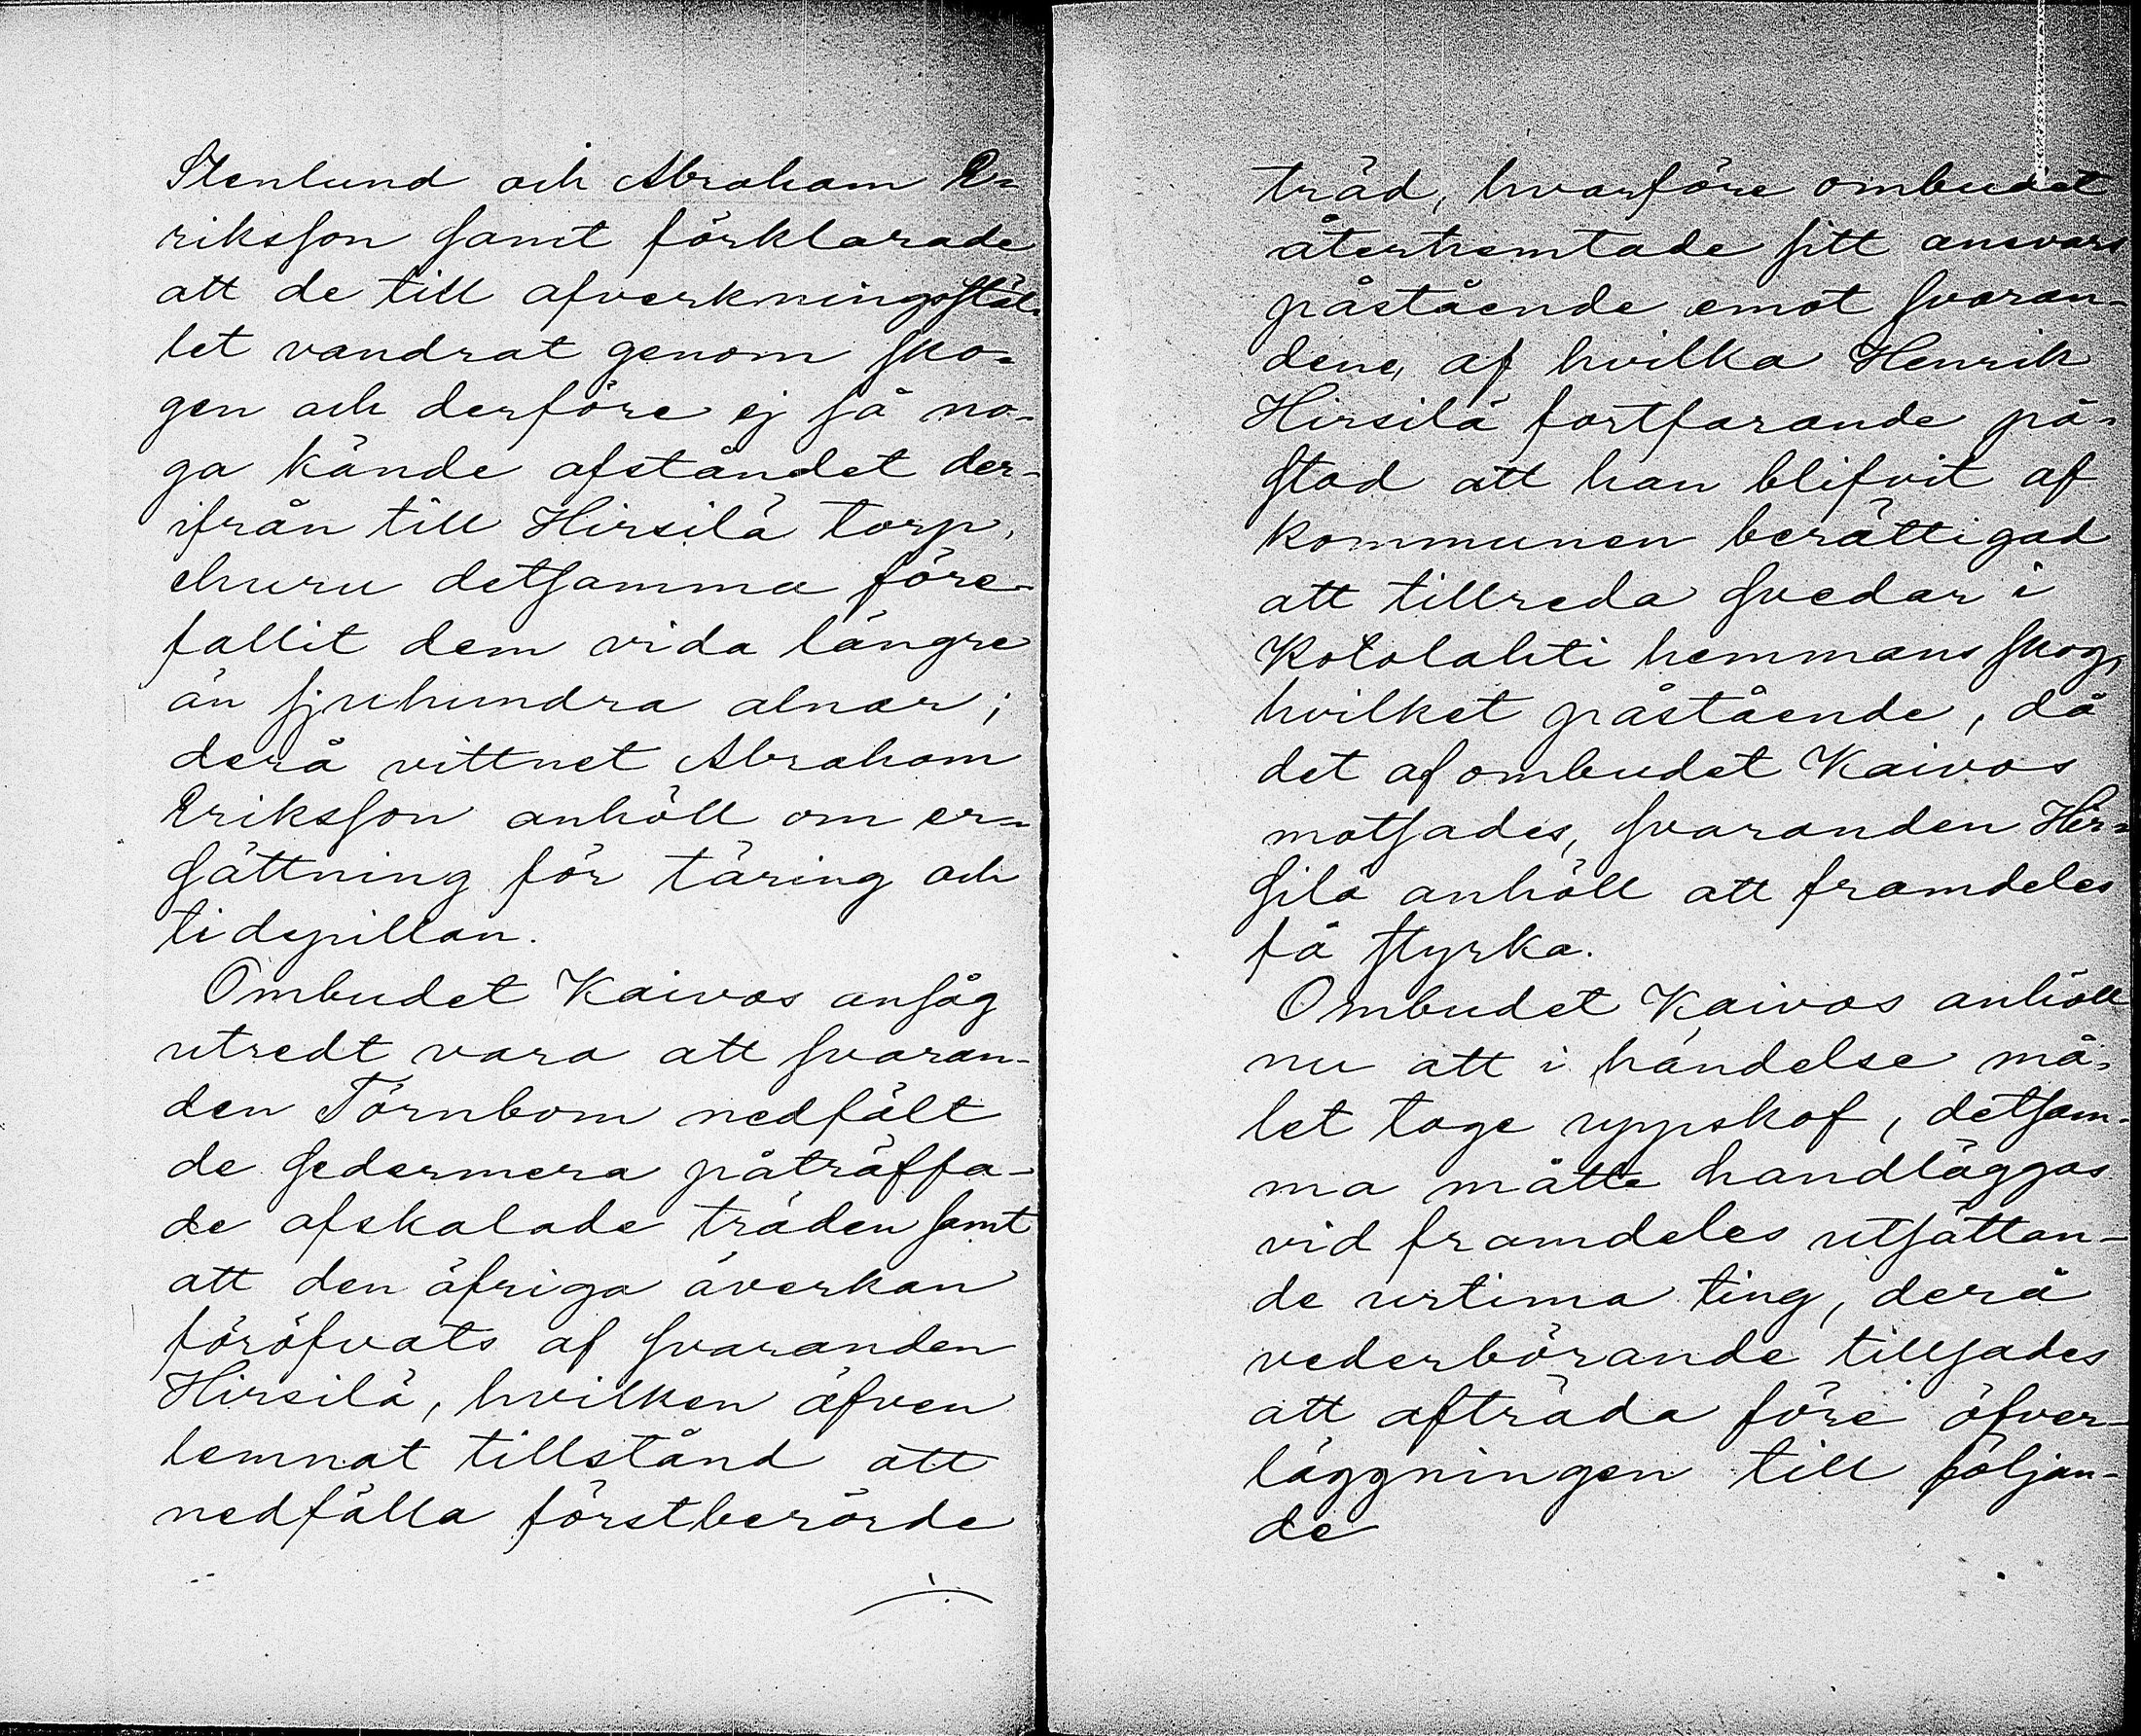 Stenlund och Abraham E-
riksson samt förklarade
att de till afverkningsstäl-
let vandrat genom sko-
gen och derföre ej så no-
ga kände afståndet der-
ifrån till Hirsilä torp,
ehuru detsamma före-
fallit dem vida längre
än sjuhundra alnar;
derå vittnet Abraham
Eriksson anhöll om er-
sättning för täring och
tidspillan.
Ombudet Kaivos ansåg
utredt vara att svaran-
den Törnbom nedfält
de sedermera påträffa-
de afskalade träden samt
att den öfriga åverkan
föröfvats af svaranden
Hirsilä, hvilken äfven
lemnat tillstånd att
nedfälla förstberörde
träd, hvarföre ombudet
återhemtade sitt ansvars
påstående emot svaran-
dene, af hvilka Henrik
Hirsilä fortfarande på-
stod att han blifvit af
kommunen berättigad
att tillreda svedar i
Kotolahti hemmans skog,
hvilket påstående, då
det af ombudet Kaivos
motsades, svaranden Hir-
silä anhöll att framdeles
få styrka.
Ombudet Kaivos anhöll
nu att i händelse må-
let toge uppskof, detsam-
ma måtte handläggas
vid framdeles utsättan-
de urtima ting, derå
vederbörande tillsades
att afträda före öfver-
läggningen till följan-
de